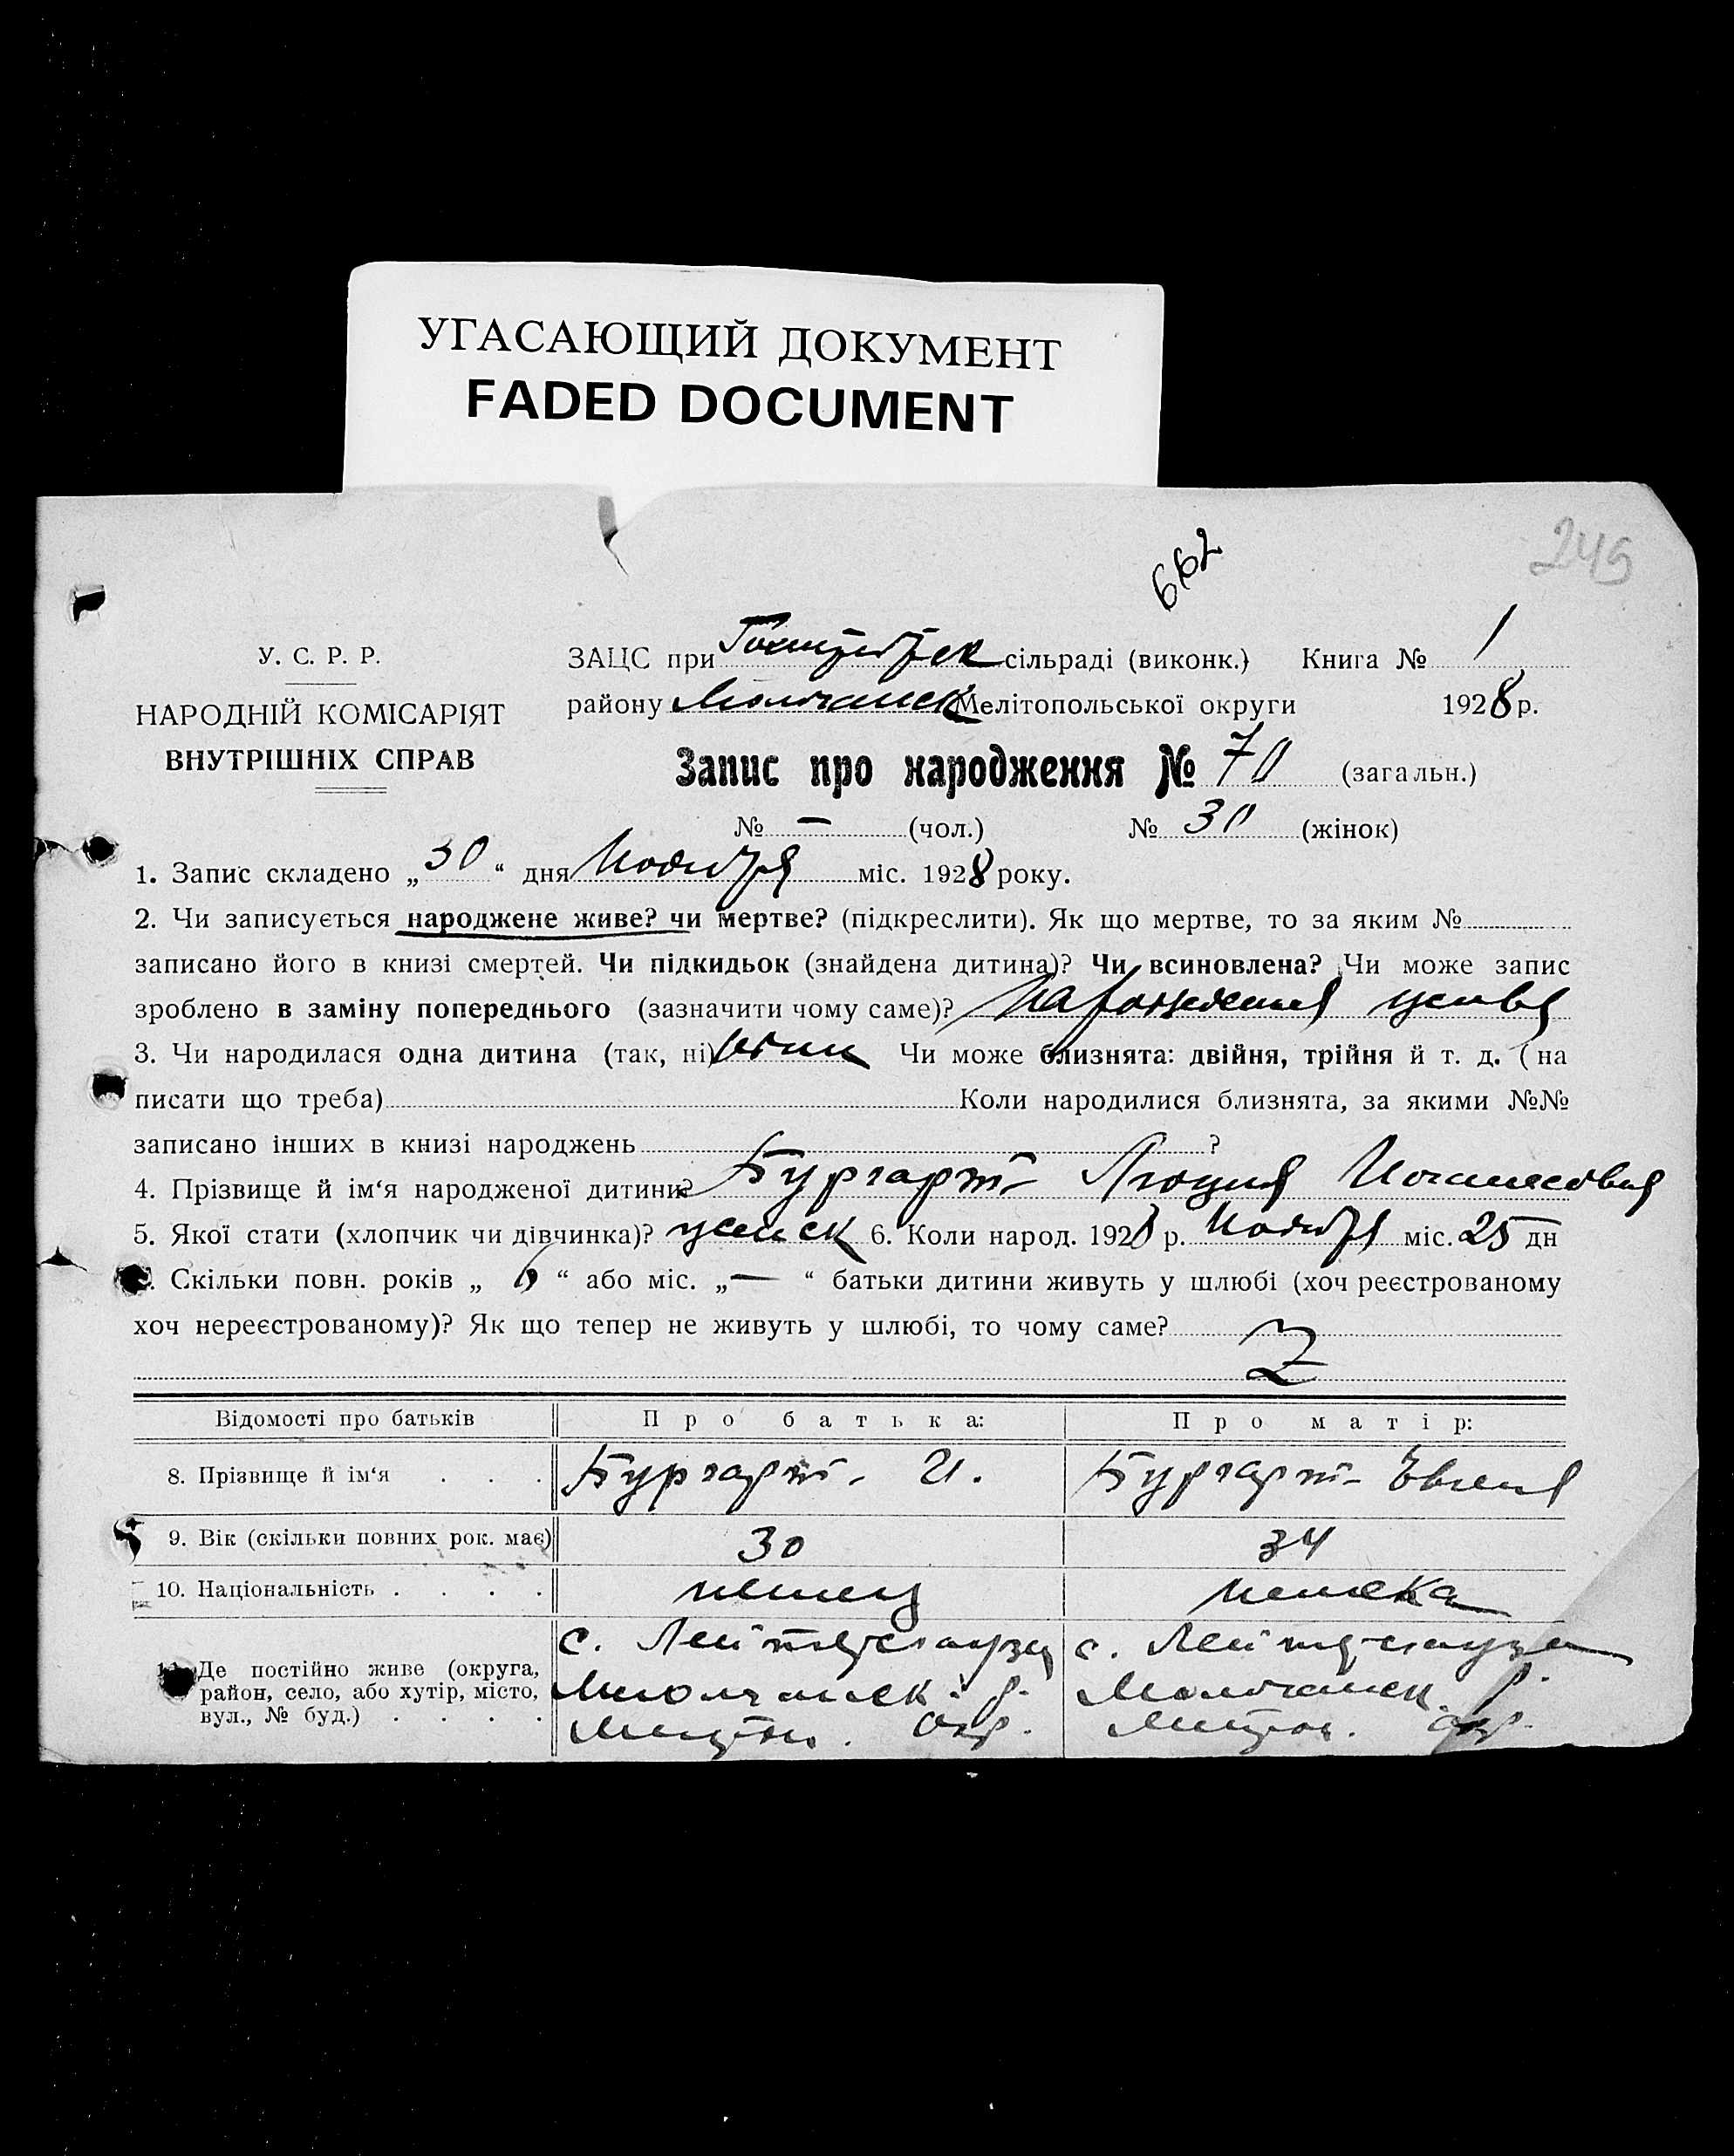 УГАСАЮЩИЙ ДОКУМЕНТ
FADED DOCUMENT
662
245
У. С. Р. Р.
НАРОДНІЙ КОМІСАРІЯТ
ВНУТРІШНІХ СПРАВ
ЗАЦС при сільраді (виконк.) Книга № 1
району Молочанск Мелітопольської округи 1928 р.
Запис про народження № 70 (загальн.)
№ — (чол.) № 30 (жінок)
1. Запис складено „30“ дня Ноября міс. 1928 року.
2. Чи записується народжене живе? чи мертве? (підкреслити). Як що мертве, то за яким №
записано його в книзі смертей. Чи підкидьок (знайдена дитина)? Чи всиновлена? Чи може запис
зроблено в заміну попереднього (зазначити чому саме)?
3. Чи народилася одна дитина (так, ні) один Чи може близнята: двійня, трійня й т. д. (на
писати що треба) Коли народилися близнята, за якими №№
записано інших в книзі народжень ?
4. Прізвище й ім‘я народженої дитини? Бургарт Люция Иоганесовна
5. Якої стати (хлопчик чи дівчинка)? женск 6. Коли народ. 1928 р. Ноября міс. 25 дн
Скільки повн. років „6“ або міс. „—“ батьки дитини живуть у шлюбі (хоч реєстрованому
хоч нереєстрованому)? Як що тепер не живуть у шлюбі, то чому саме?
Відомості про батьків Про батька: Про матір:
8. Прізвище й ім‘я . . . Бургарт И. Бургарт Евгения
9. Вік (скільки повних рок. має) 30 34
10. Національність . . . . немец немка
11. Де постійно живе (округа, район, село, або хутір, місто, вул., № буд.) . . . . с. Молочанск. р. Окр. с. Молочанск. р. Окр.